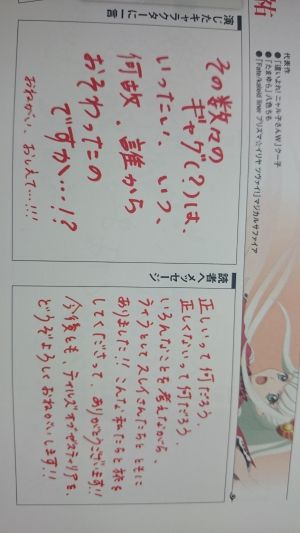 祐
代表作
●『這いよれ!ニャル子さんW』クー子
●『たまゆら』八色ちも
●『Fate/kaleid liner プリズマ☆イリヤ ツヴァイ!』マジカルサファイア
演じたキャラクターに一言
その数々の
ギャグ(?)は、
いったい、いつ、
何故、誰から
おそわったの
ですか…!?
おねがい、おしえて…!!!
読者へメッセージ
正しいって何だろう、
正しくないって何だろう、
いろんなことを考えながら、
ライラとしてスレイさんたちとともに
ありました!! こんな私たちと旅を
してくださって、ありがとうございます!!
今後とも、テイルズオブゼスティリアを、
どうぞよろしくおねがいします!!